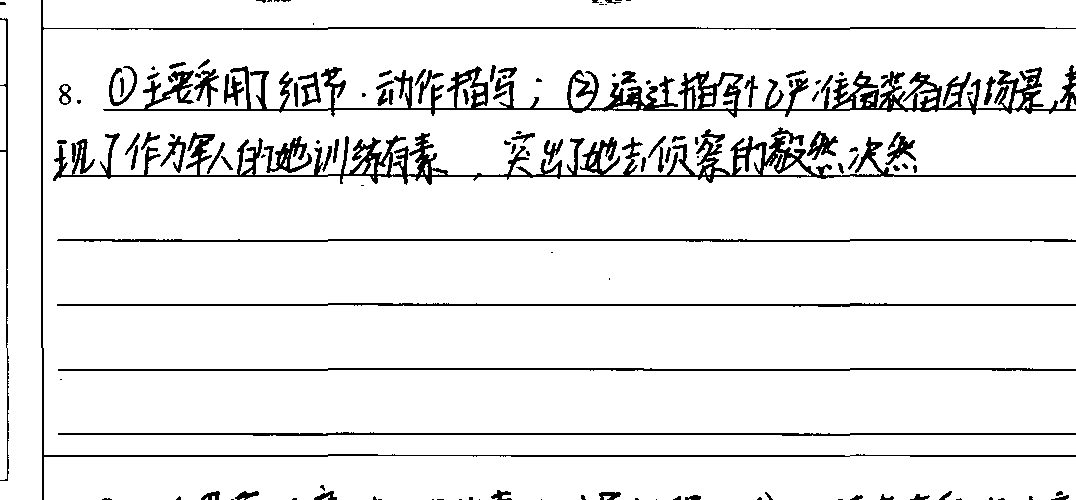 8. ①主要采用了细节·动作描写；②通过描写忆严准备装备的场景,表
现了作为军人的她训练有素，突出了她去侦察的毅然决然